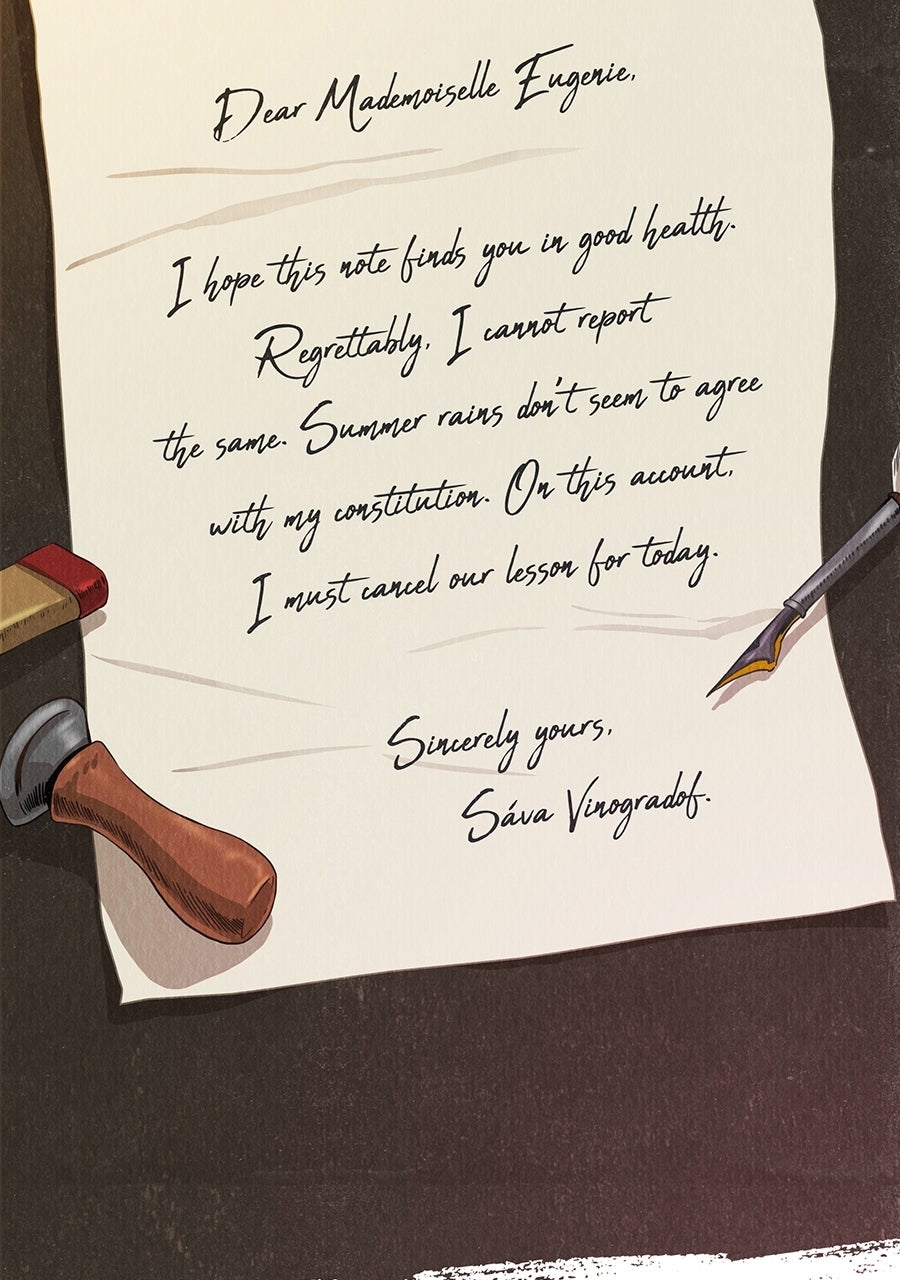 Dear Mademoiselle Eugenie,
I hope this note finds you in good health.
Regrettably, I cannot report
the same. Summer rains don't seem to agree
with my constitution. On this account,
I must cancel our lesson for today.
Sincerely yours,
Sáva Vinogradof.